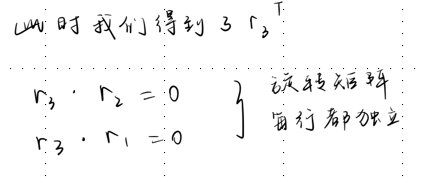 此时我们得到了 r₃ᵀ
r₃ · r₂ = 0
r₃ · r₁ = 0
} 旋转矩阵
每行都独立